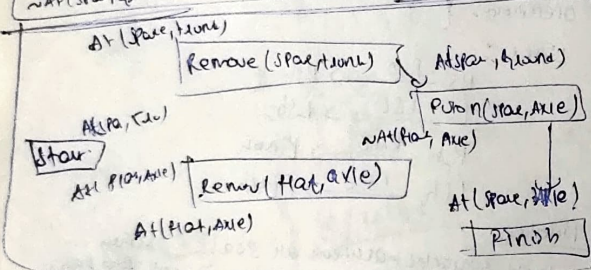 At(spare, trunk)
Remove(spare, trunk)
At(spar, ground)
Puton(spare, Axle)
At(spa,
Star
~At(flat, Axle)
At( flat, Axle)
Remov(flat, axle)
At(flat, Axle)
At(spare,
Finish